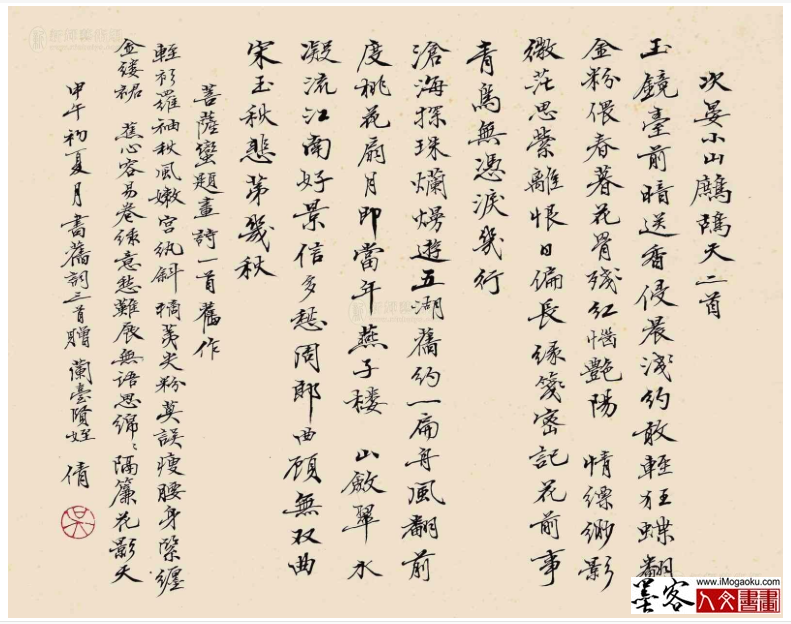 次晏小山鷓鴣天二首
玉鏡臺前暗送香侵晨淺約敢輕狂蝶翻
金粉偎春暮花骨殘紅惱艷陽 情縹緲影
微茫思縈離恨日偏長綠箋密記花前事
青鳥無憑淚幾行
滄海探珠爛熳遊五湖舊約一扁舟風翻前
度桃花扇月即當年燕子樓 山斂翠水
凝流江南好景信多愁周郎曲顧無双曲
宋玉秋悲第幾秋
菩薩蠻題畫詩一首舊作
輕衫羅袖秋風嫩宮紈斜搊荑尖粉莫誤瘦腰身緊纏
金縷裙 蕉心容易卷綠意愁難展無語思綿〻隔簾花影天
甲午初夏月書舊詞三首贈 蘭臺賢姪 倩
墨客 www.iMogaoku.com
人文書畫